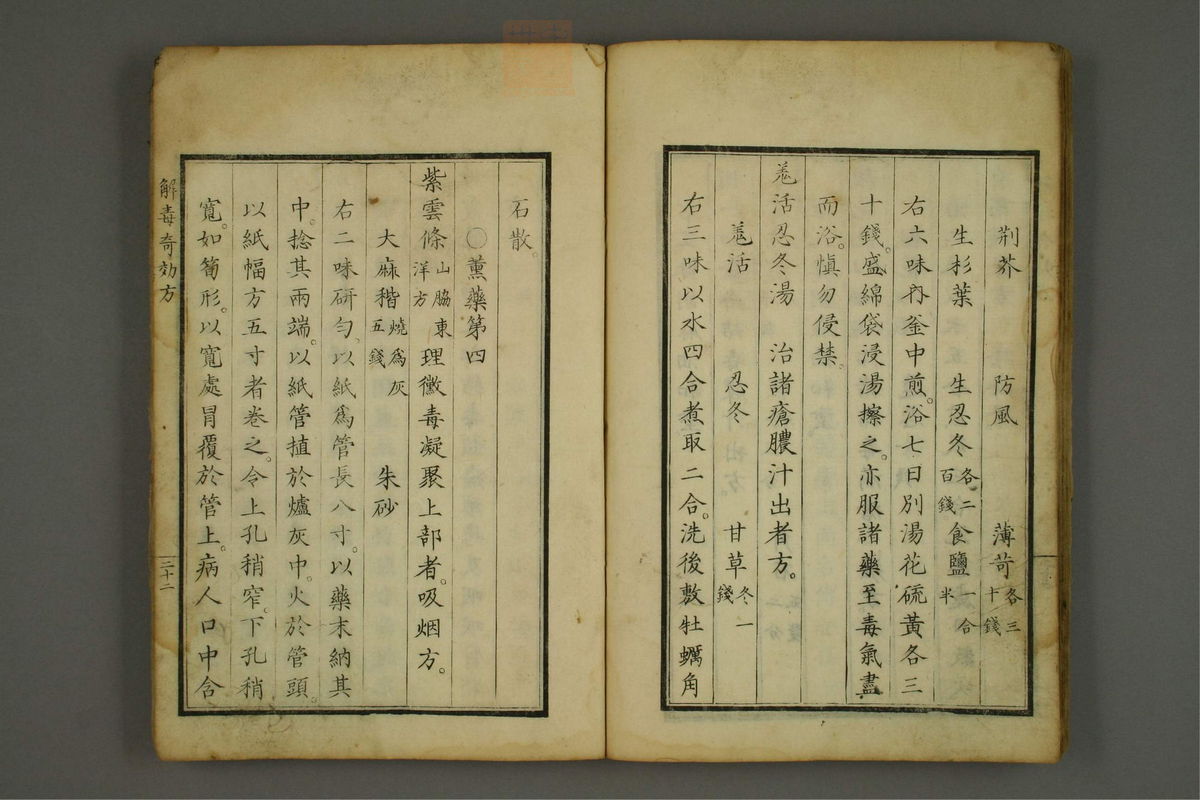 荆芥　防風　薄苛各三十錢
生杉葉　生忍冬各二百錢食鹽一合半
右六味內釜中煎。浴七日別湯花硫黄各三
十錢。盛綿袋浸湯擦之。亦服諸藥至毒氣盡
而浴。愼勿侵禁。
羗活忍冬湯　治諸瘡膿汁出者方。
羗活　忍冬　甘草各一錢
右三味以水四合煮取二合。洗後敷牡蠣角
石散。
〇薰藥第四
紫雲條山脇東洋方理黴毒凝聚上部者。吸烟方。
大麻稭燒爲灰五錢　朱砂
右二味研勻、以紙爲管長八寸。以藥末納其
中。捻其兩端。以紙管植於爐灰中。火於管頭。
以紙幅方五寸者卷之。令上孔稍窄。下孔稍
寬。如筍形。以寬處冒覆於管上。病人口中含
解毒奇効方
三十二